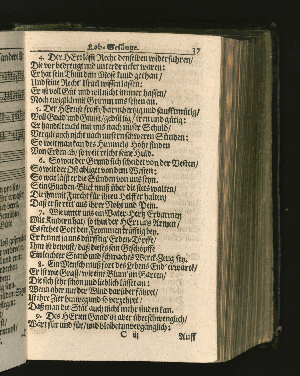 Lob-Gesänge. 37
4. Der HErr läst Recht denselben wiederfahren/
Die vor bedrengt und unterdrücket waren:
Er hat sein Thun dem Mose kund gethan/
Und seine Recht Israel wissen lassen:
Er ist voll Güt und will nicht immer hassen/
Noch ewiglich mit Grimm uns sehen an.
5. Der HErr ist from/ barmhertzig und sanfftmütig/
Voll Gnad und Gunst/ gedültig/ treu und gütig:
Er handelt nicht mit uns nach unser Schuld/
Vergilt auch nicht nach unsern schweren Sünden:
So weit man kan des Himmels Höhe finden
Von Erden ab/ so weit reicht seine Huld.
6. So war der Grund sich scheidet von der Vesten/
So weit der Ost abliget von dem Westen:
So weit läst er die Sünden von uns seyn.
Sein Gnaden-Blick muß über die stets walten/
Die ihn mit Furcht für ihren Helffer halten/
Daß er errett aus ihrer Noht und Pein.
7. Wie unter uns ein Vater Hertz Erbarmen
Mit Kindern hat/ so thut der HErr uns Armen/
Es stehet Gott den Frommen kräfftig bey.
Er kennet ja uns dürfftig Erden-Gäste/
Ihm ist bewust/ daß dieses sein Geschöpffe
Ein lochter Sand und schwaches Werck-Zeug sey.
8. Ein Mensch muß fort des Lebens End erwarten/
Er ist wie Graß/ wie eine Blum im Garten/
Die sich sehr schön und lieblich läßt an:
Wenn aber nur der Wind darüber fähret/
Ist ihre Zier hinweg und so verzehret/
Daß man die Stät auch nicht mehr finden kan.
9. Des HErrn Gnad ist aber überschwenglich/
Währt für und für/ und bleibet unvergänglich:
C iij Auff